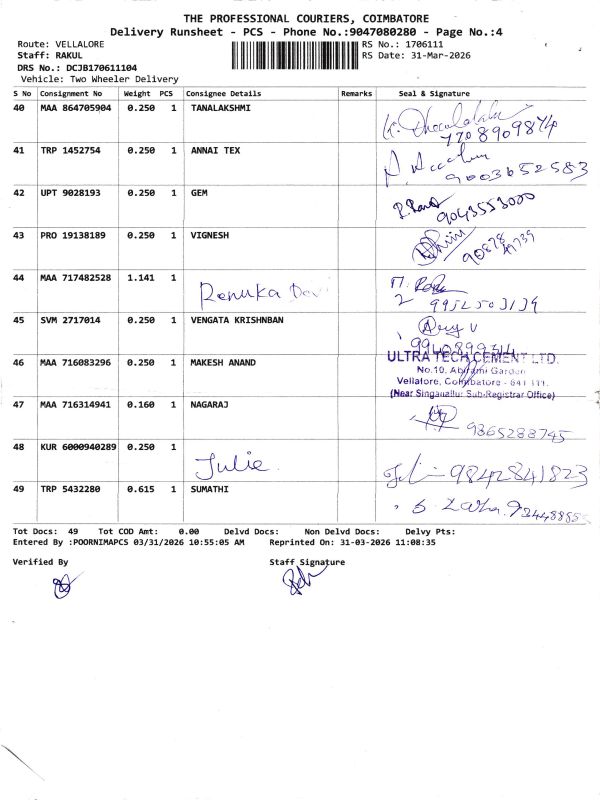 THE PROFESSIONAL COURIERS, COIMBATORE
Delivery Runsheet - PCS - Phone No.:9047080280 - Page No.:4
Route: VELLALORE RS No.: 1706111
Staff: RAKUL RS Date: 31-Mar-2026
DRS No.: DCJB170611104
Vehicle: Two Wheeler Delivery
S No Consignment No Weight PCS Consignee Details Remarks Seal & Signature
40 MAA 864705904 0.250 1 TANALAKSHMI
7708909874
41 TRP 1452754 0.250 1 ANNAI TEX
9003652583
42 UPT 9028193 0.250 1 GEM
9043553000
43 PRO 19138189 0.250 1 VIGNESH
44 MAA 717482528 1.141 1 Renuka Devi
9952503139
45 SVM 2717014 0.250 1 VENGATA KRISHNBAN
9940899314
46 MAA 716083296 0.250 1 MAKESH ANAND ULTRA TECH CEMENT LTD.
No.10, Abirami Garden
Vellalore, Coimbatore - 641 111.
(Near Singanallur Sub-Registrar Office)
47 MAA 716314941 0.160 1 NAGARAJ
9865288745
48 KUR 6000940289 0.250 1 Julie 9842841823
49 TRP 5432280 0.615 1 SUMATHI
Tot Docs: 49 Tot COD Amt: 0.00 Delvd Docs: Non Delvd Docs: Delvy Pts:
Entered By :POORNIMAPCS 03/31/2026 10:55:05 AM Reprinted On: 31-03-2026 11:08:35
Verified By Staff Signature